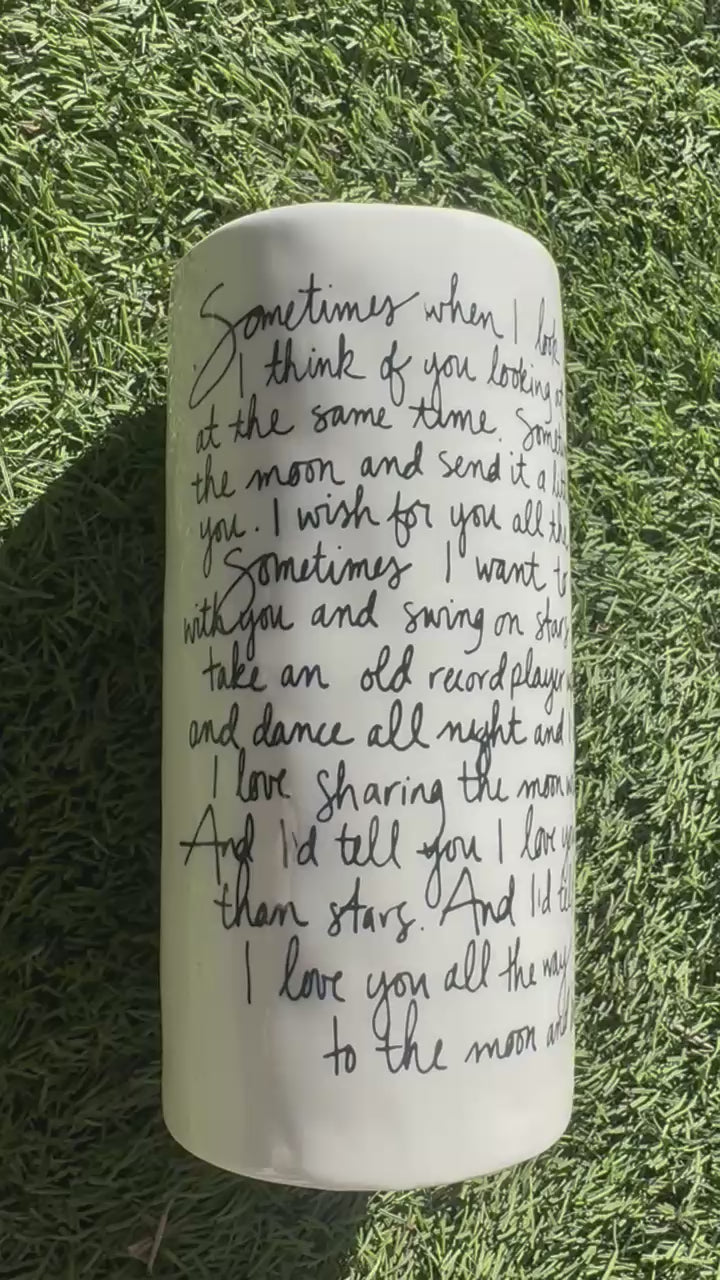 Sometimes when I look
I think of you looking at
at the same time. Somet
the moon and send it a lit
you. I wish for you all the
Sometimes I want to
with you and swing on stars
take an old record player
and dance all night and I
I love sharing the moon w
And I'd tell you I love yo
than stars. And I'd tel
I love you all the way
to the moon and